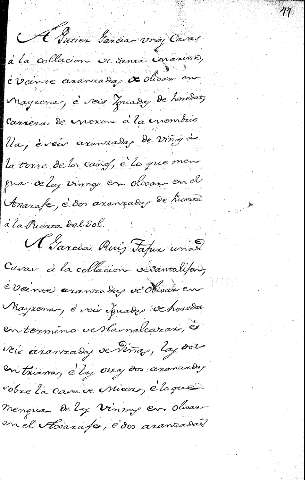 44
A Gutier Garcia unas Casas
à la collacion de Santa
è veinte aranzadas de olivar en
Mayrena, è seis Yugadas de heredad
Carrera de Moron à la
lla, è seis aranzadas de viñas à
la torre de los caños, è lo que men
gua de los veinte en olivar en el
Axarafe, è dos aranzadas de huerta
à la Puerta del Sol.
A Garcia Ruis Tafur unas
Casas à la collacion de
è veinte aranzadas de Olivar en
Mayrena, è seis Yugadas de heredad
en termino de
seis aranzadas de viñas, las dos
en triana, è las otras dos aranzadas
sobre la casa de è lo que
mengua de los veinte en olivar
en el Axarafe, è dos aranzadas